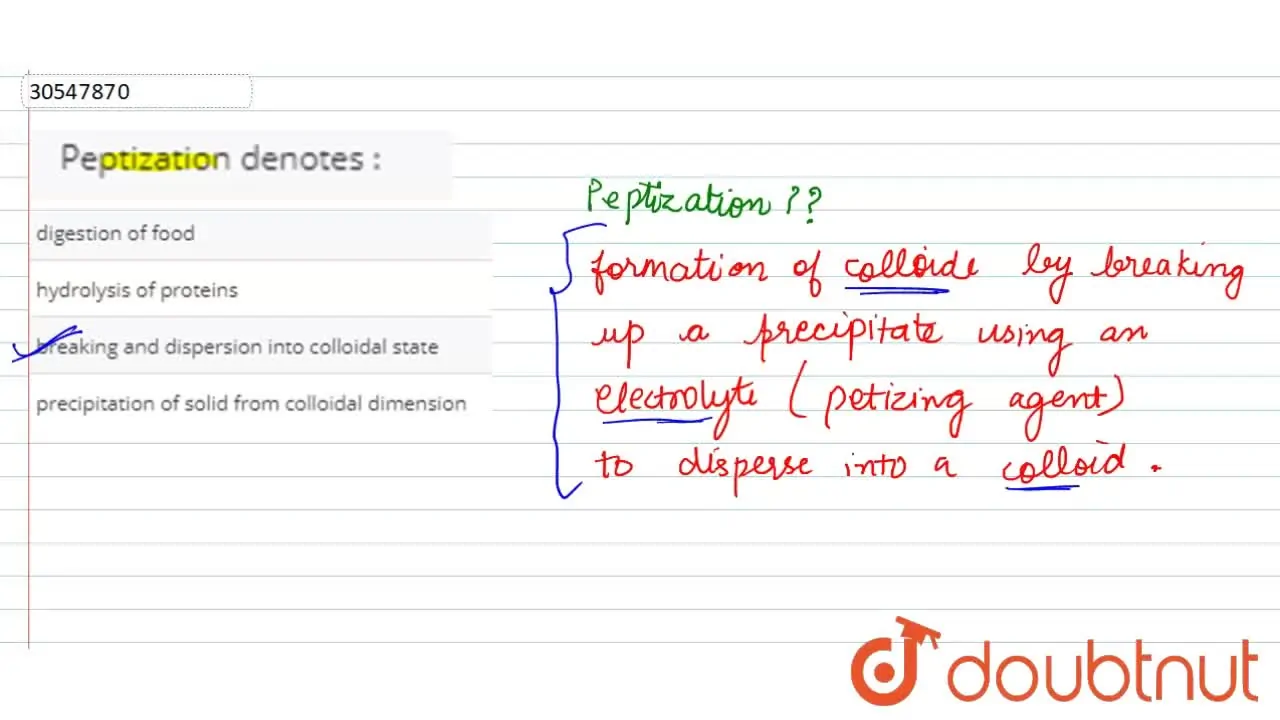 30547870
Peptization denotes :
digestion of food
hydrolysis of proteins
breaking and dispersion into colloidal state
precipitation of solid from colloidal dimension
Peptization ??
formation of colloide by breaking
up a precipitate using an
electrolyte (petizing agent)
to disperse into a colloid.
doubtnut